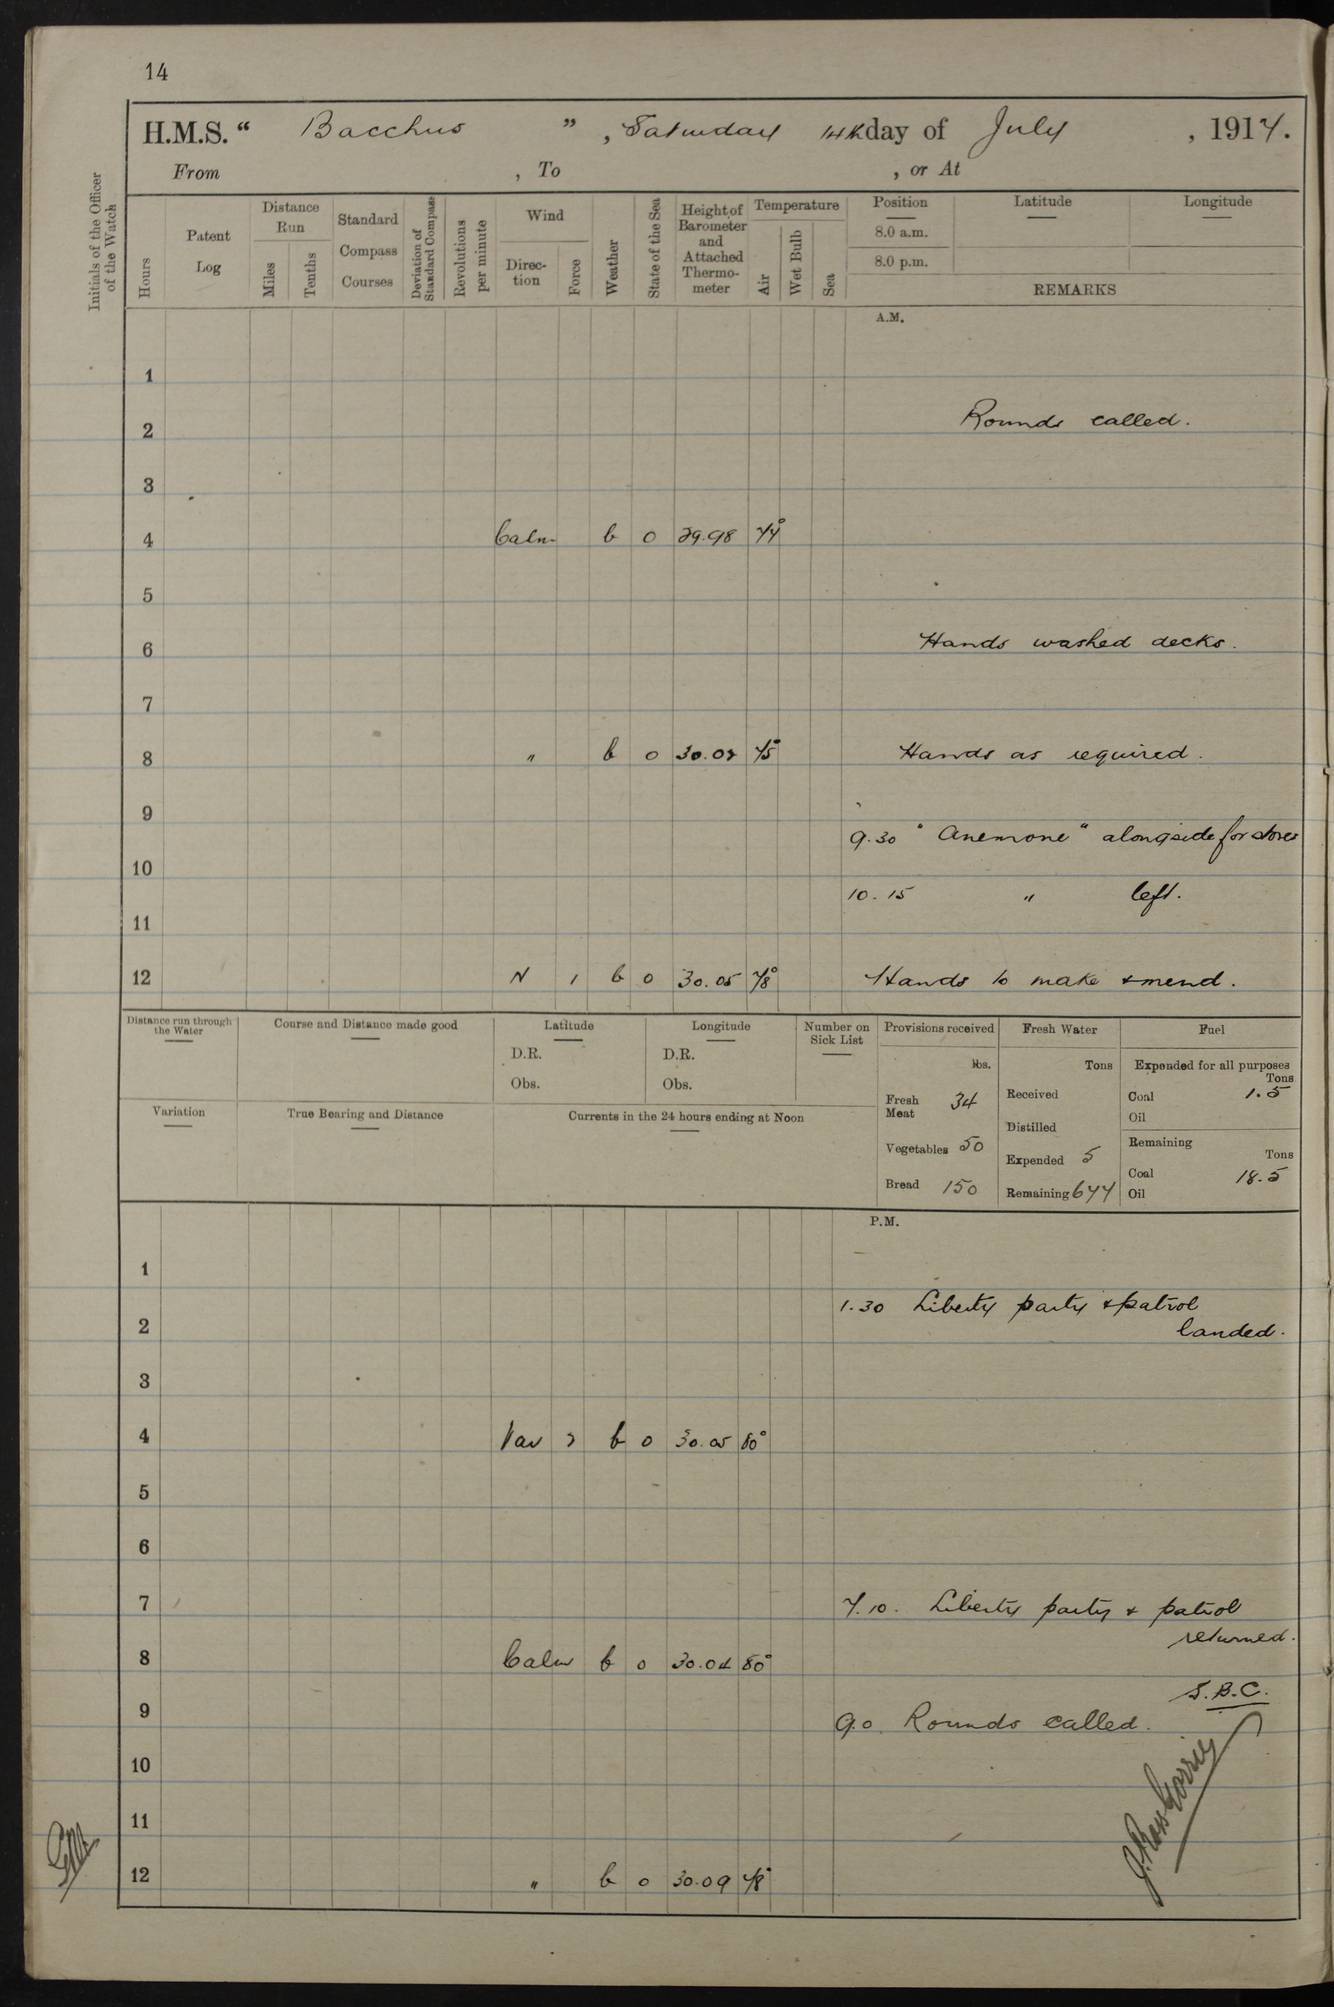 14
H.M.S. “ Bacchus ” , Saturday 14th day of July , 1917.
From , To , or At
Initials of the Officer of the Watch
Hours
Patent Log
Distance Run
Miles
Tenths
Standard Compass Courses
Deviation of Standard Compass
Revolutions per minute
Wind
Direction
Force
Weather
State of the Sea
Height of Barometer and Attached Thermometer
Temperature
Air
Wet Bulb
Sea
Position
8.0 a.m.
8.0 p.m.
Latitude
Longitude
REMARKS
A.M.
1
2 Rounds called.
3
4 Calm b 0 29.98 74°
5
6 Hands washed decks.
7
8 " b 0 30.02 75° Hands as required.
9
9.30 "Anemone" alongside for stores
10
10.15 " left.
11
12 N 1 b 0 30.05 78° Hands to make & mend.
Distance run through the Water
Course and Distance made good
Latitude
D.R.
Obs.
Longitude
D.R.
Obs.
Number on Sick List
Variation
True Bearing and Distance
Currents in the 24 hours ending at Noon
Provisions received
lbs.
Fresh Meat 34
Vegetables 50
Bread 150
Fresh Water
Tons
Received
Distilled
Expended 5
Remaining 677
Fuel
Expended for all purposes
Tons
Coal 1.5
Oil
Remaining
Tons
Coal 18.5
Oil
P.M.
1
1.30 Liberty party & patrol
2 landed.
3
4 Var 2 b 0 30.05 80°
5
6
7 7.10. Liberty party & patrol
returned.
8 Calm b 0 30.04 80°
S.B.C.
9 9.0. Rounds called.
10
11
12 " b 0 30.09 78°
J. Ross Gorrie